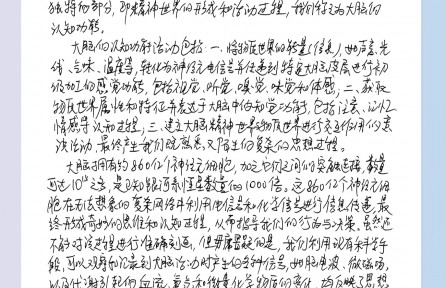 独特的部分，即精神世界的形成和活动过程，我们称为大脑的
认知功能
大脑的认知功能活动包括：一、将物质世界的能量（信息）如声音、光
线、气味、温度等，转化为神经元电信号并传递到特定大脑皮层进行初
级加工的感觉功能，包括视觉、听觉、嗅觉、味觉和体感；二、获取
物质世界属性和特征并表达于大脑中的知觉功能，包括注意、记忆
情感等认知过程，三、建立大脑精神世界与物质世界进行交互作用的意
识活动，最终产生我们既熟悉又陌生的复杂的思想过程。
大脑拥有约860亿个神经元细胞，加之它们之间的突触连接，数量
可达10¹⁵之多，是已知银河系恒星数量的1000倍。这860亿个神经元细
胞在无法想象的复杂网络中利用电信号和化学信号进行信息传递，最
终形成奇妙的思维和认知过程，从而指导我们的行为与决策。虽然还
不能对该过程进行准确刻画，但毋庸置疑的是，我们利用现有科学手
段，可以观察和记录到大脑活动时产生的各种信号，如脑电波、微磁场，
以及代谢引起的血流、氧含和微量化学物质的变化，均反映了思想